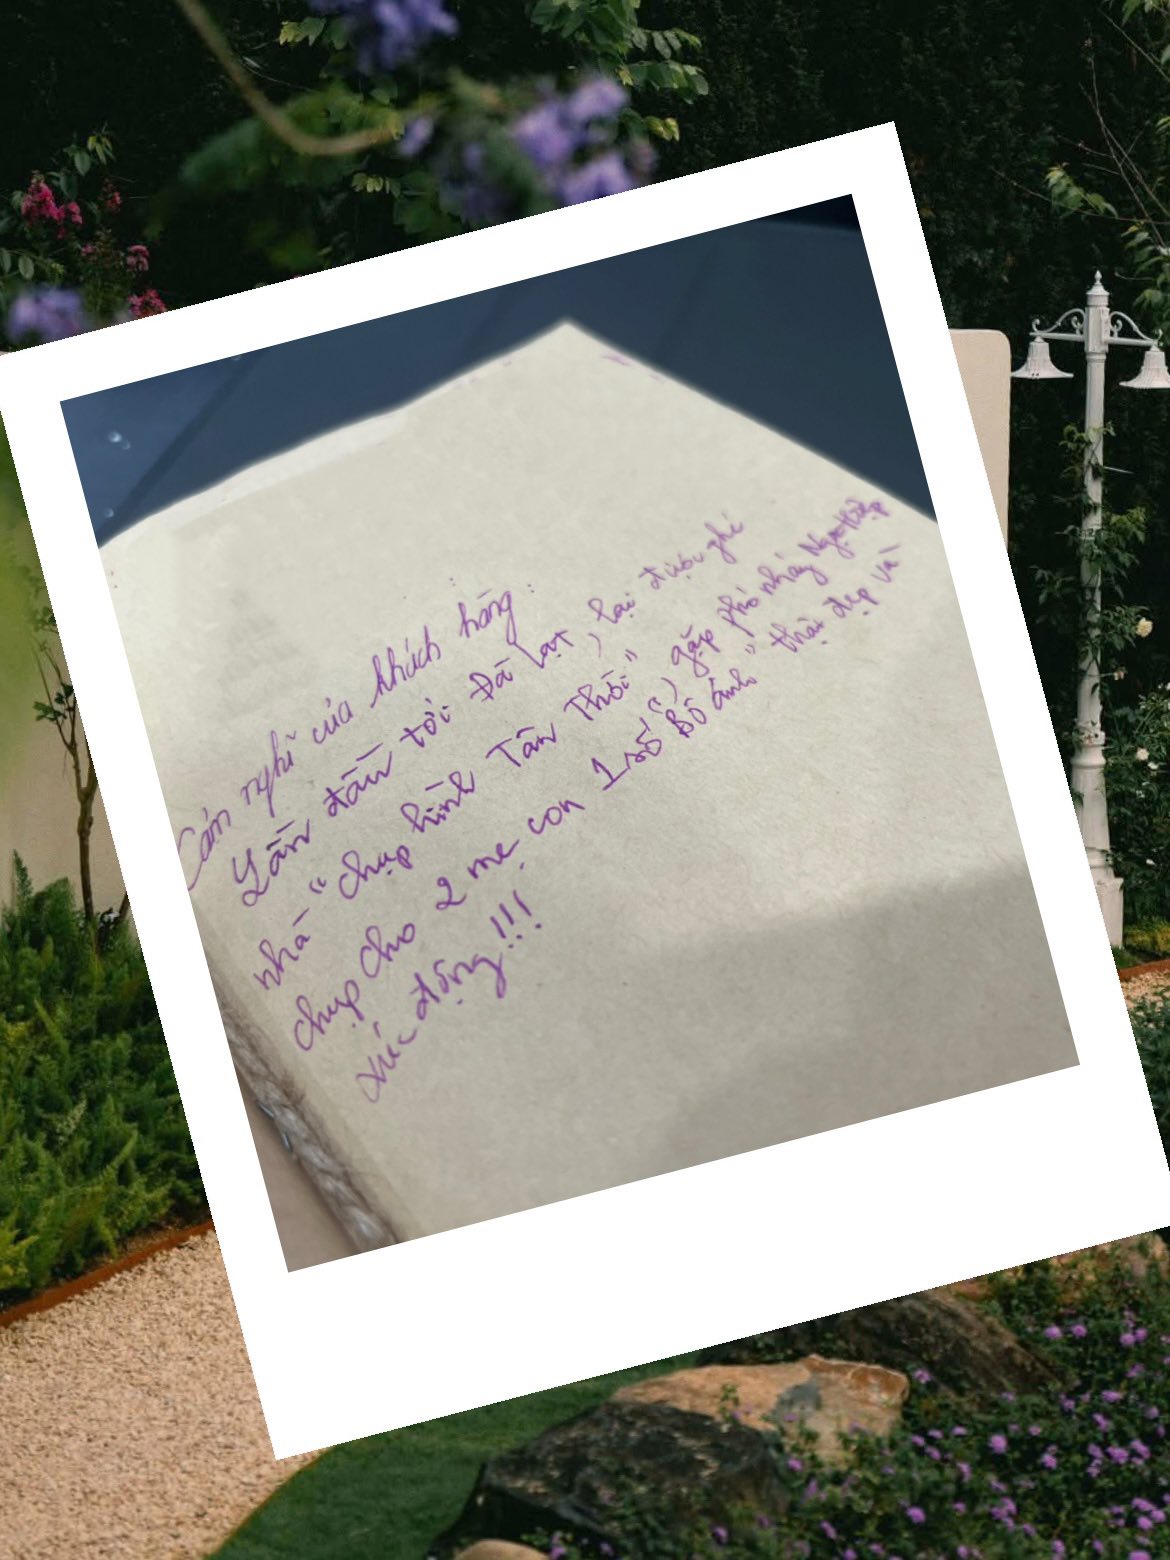 Cảm nghĩ của khách hàng:
Lần đầu tới Đà Lạt, lại được ghé
nhà "chụp hình Tân Thời", gặp phó nháy
chụp cho 2 mẹ con 1 số "Bố ảnh" thật đẹp và
xúc động!!!